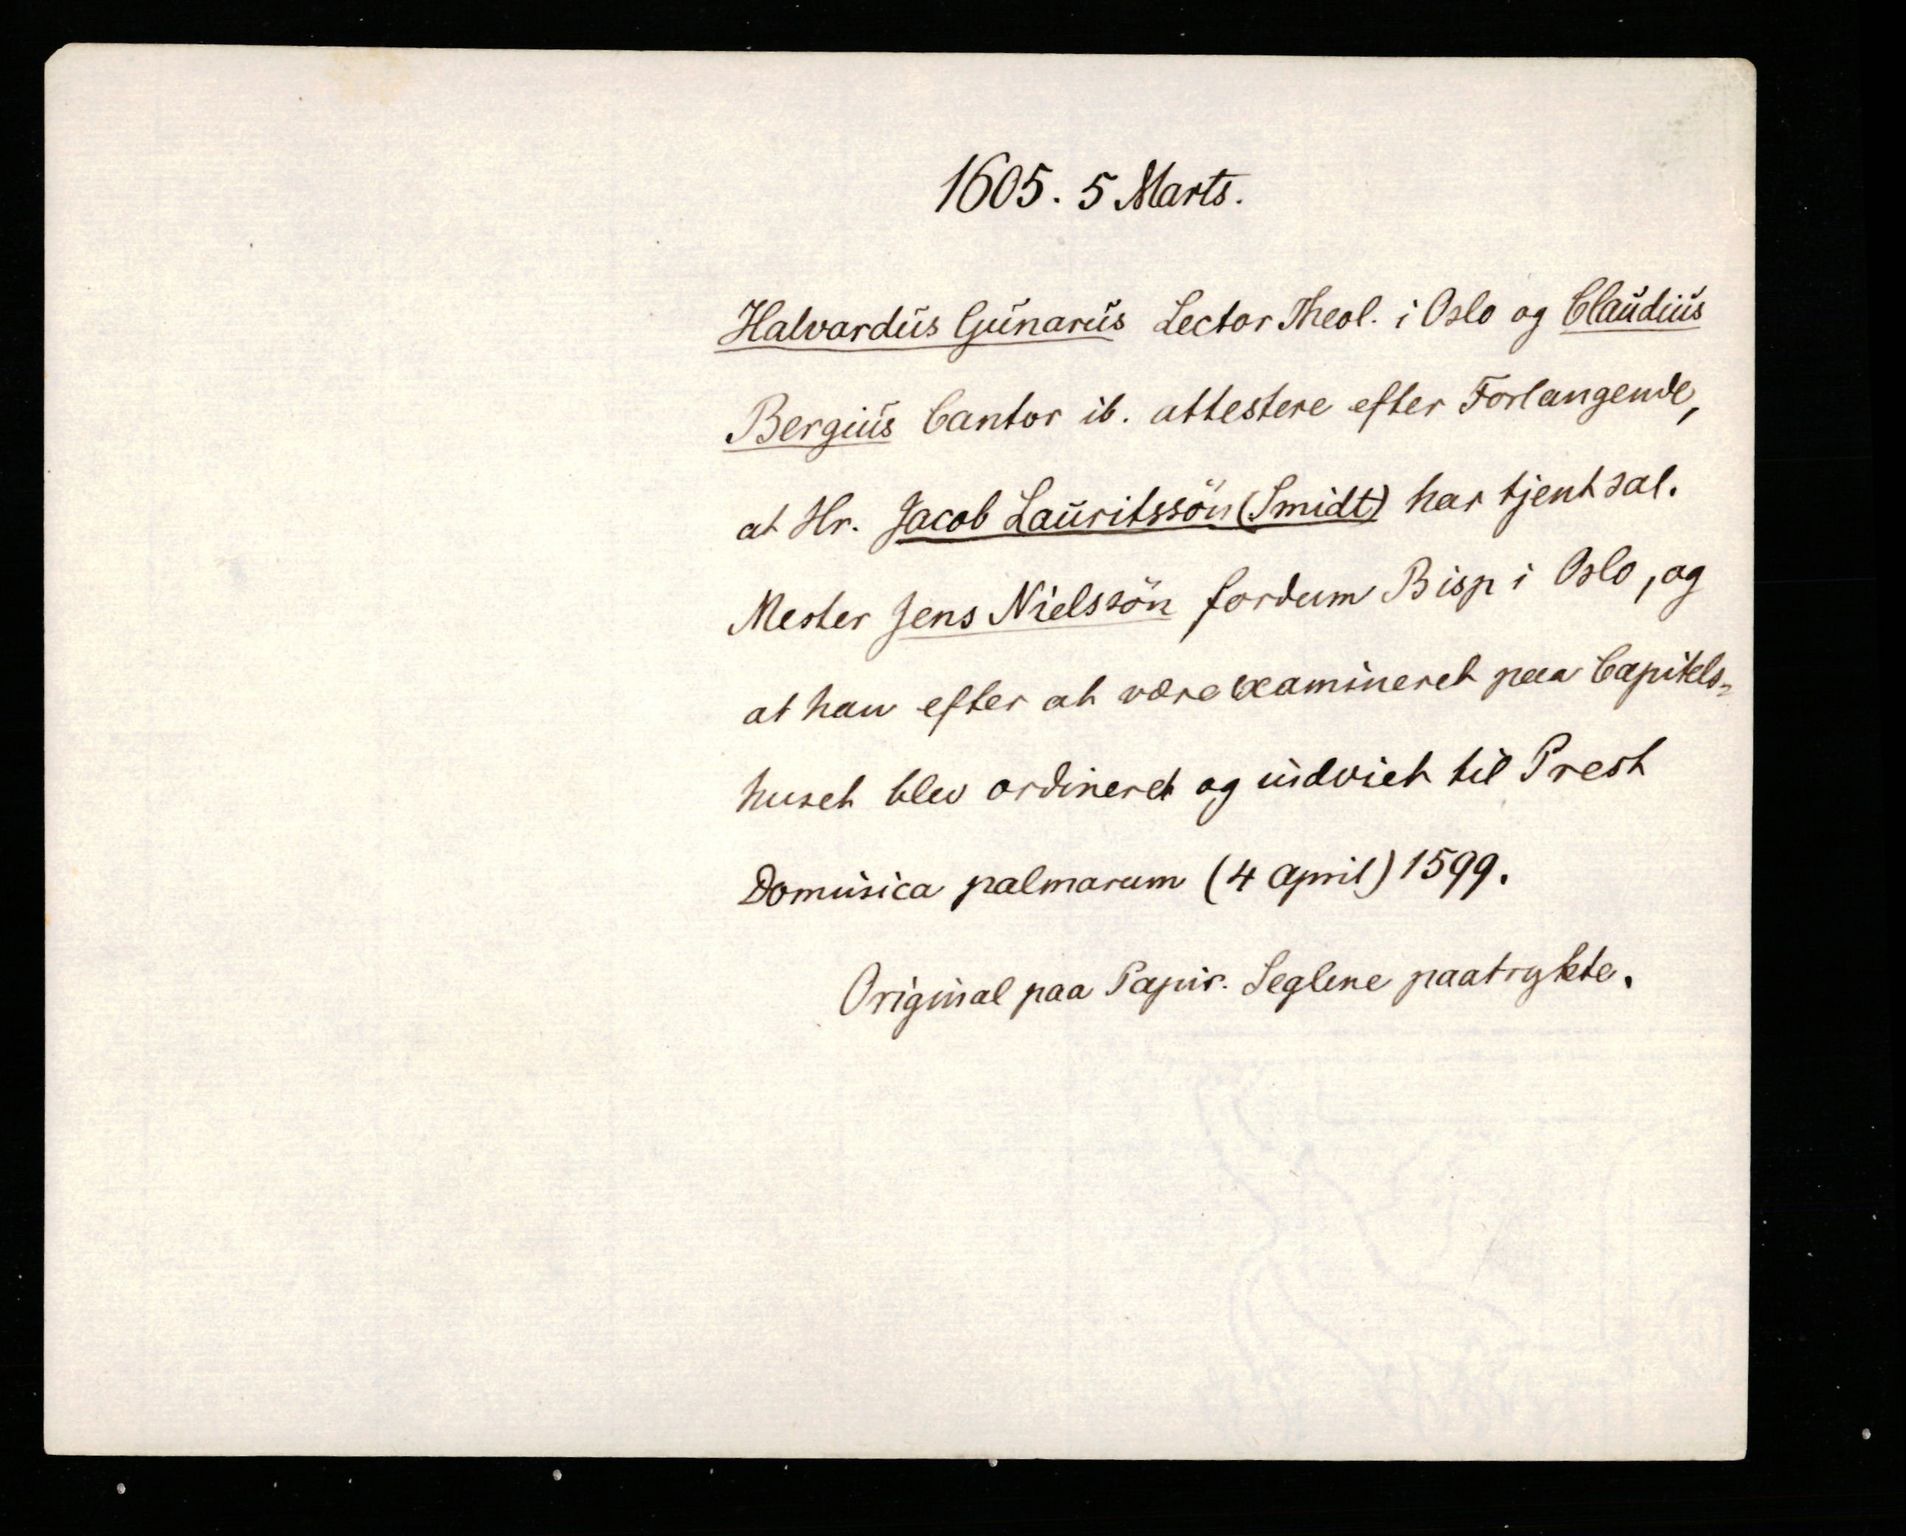 1605. 5 Marts.
Halvardus Gunarus Lector Theol. i Oslo og Claudius
Bergius Cantor ib. attestere efter Forlangende,
at Hr. Jacob Lauritssön (Smidt) har tjent sal.
Mester Jens Nielssön fordum Bisp i Oslo, og
at han efter at være examineret paa Capitels-
huset blev ordineret og indviet til Prest
Dominica palmarum (4 April) 1599.
Original paa Papir. Seglene paatrykte.